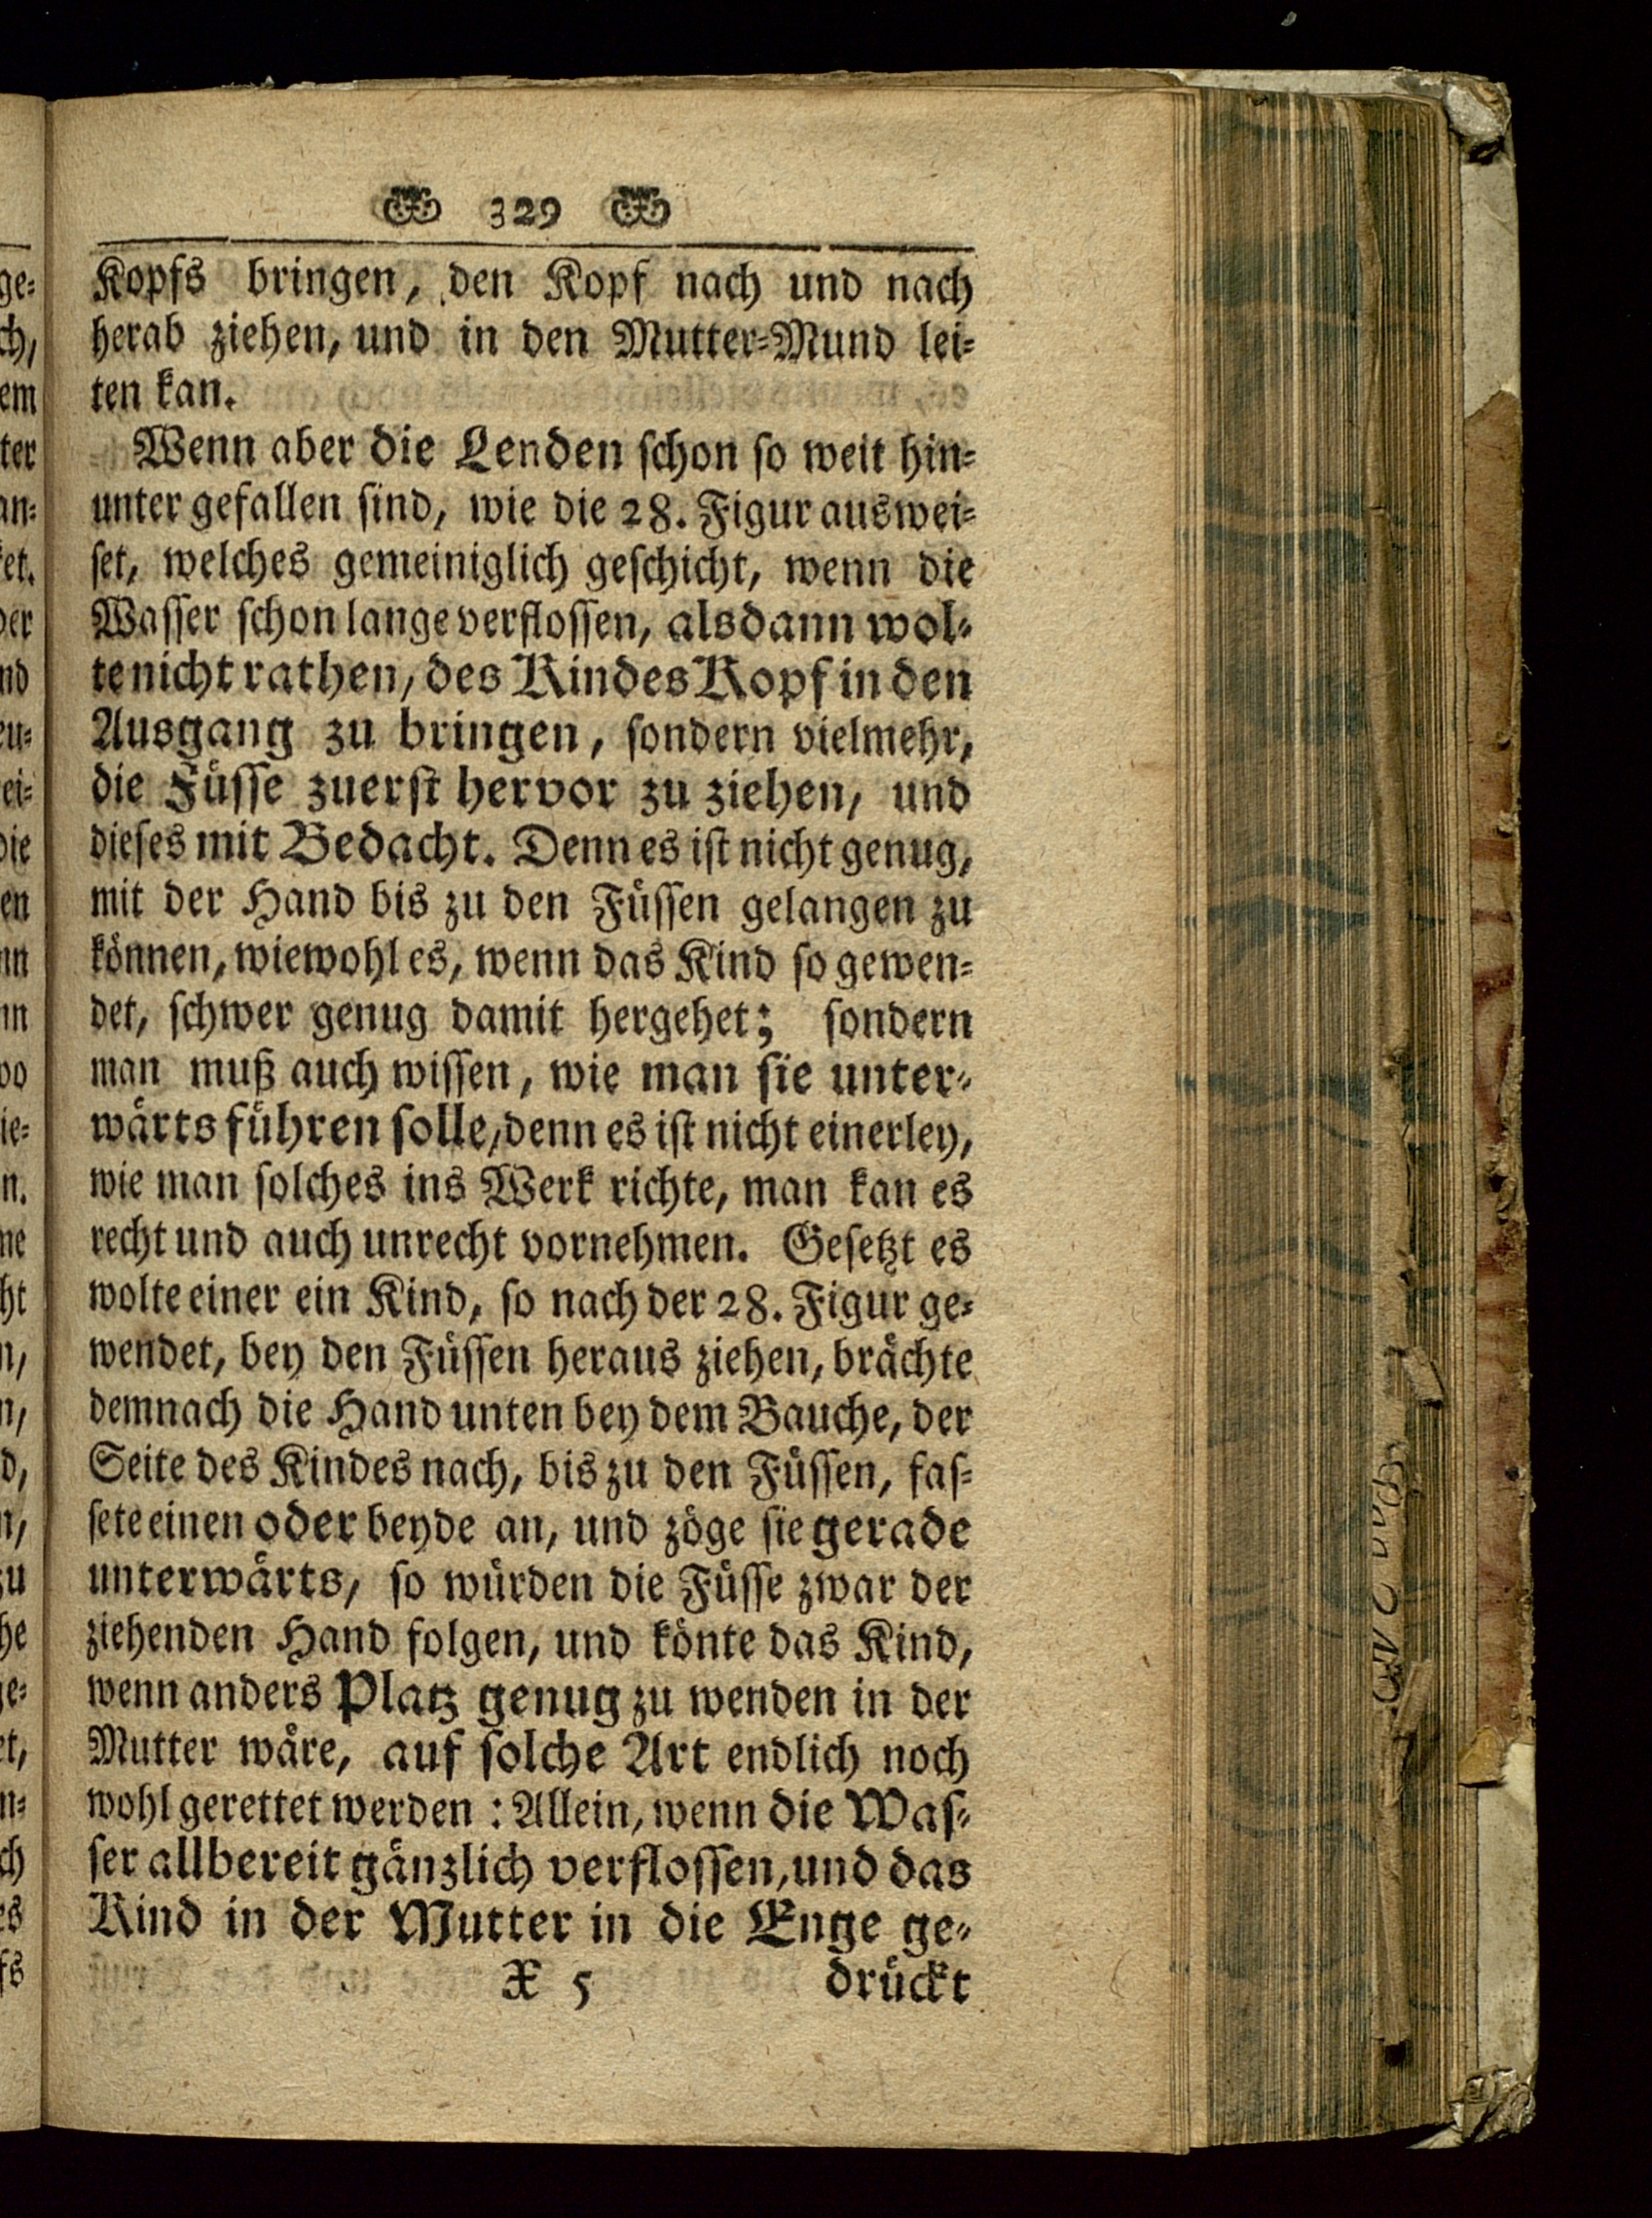 329
Kopfs bringen, den Kopf nach und nach
herab ziehen, und in den Mutter-Mund lei-
ten kan.
Wenn aber die Lenden schon so weit hin-
unter gefallen sind, wie die 28. Figur auswei-
set, welches gemeiniglich geschicht, wenn die
Wasser schon lange verflossen, alsdann wol-
te nicht rathen, des Kindes Kopf in den
Ausgang zu bringen, sondern vielmehr,
die Füsse zuerst hervor zu ziehen, und
dieses mit Bedacht. Denn es ist nicht genug,
mit der Hand bis zu den Füssen gelangen zu
können, wiewohl es, wenn das Kind so gewen-
det, schwer genug damit hergehet; sondern
man muß auch wissen, wie man sie unter-
wärts führen solle, denn es ist nicht einerley,
wie man solches ins Werk richte, man kan es
recht und auch unrecht vornehmen. Gesetzt es
wolte einer ein Kind, so nach der 28. Figur ge-
wendet, bey den Füssen heraus ziehen, brächte
demnach die Hand unten bey dem Bauche, der
Seite des Kindes nach, bis zu den Füssen, fas-
sete einen oder beyde an, und zöge sie gerade
unterwärts, so würden die Füsse zwar der
ziehenden Hand folgen, und könte das Kind,
wenn anders Platz genug zu wenden in der
Mutter wäre, auf solche Art endlich noch
wohl gerettet werden: Allein, wenn die Was-
ser allbereit gänzlich verflossen, und das
Kind in der Mutter in die Enge ge-
X 5 drückt